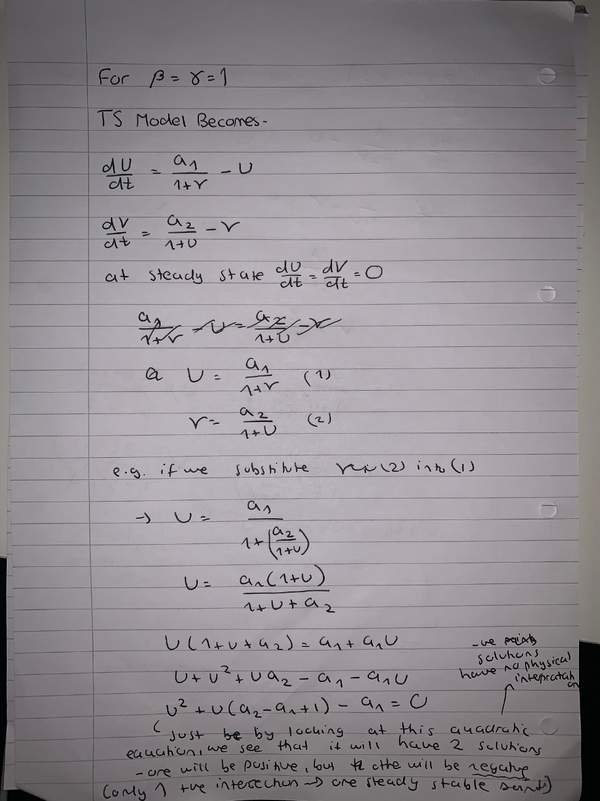 For β = γ = 1
TS Model Becomes-
dU/dt = a1/(1+v) - U
dV/dt = a2/(1+U) - v
at steady state dU/dt = dV/dt = 0
a1/(1+v) - U = a2/(1+U) - v
@ U = a1/(1+v) (1)
v = a2/(1+U) (2)
e.g. if we substitute (2) into (1)
→ U = a1/(1+(a2/(1+U)))
U = a1(1+U)/(1+U+a2)
U(1+U+a2) = a1 + a1U
U + U² + Ua2 - a1 - a1U
U² + U(a2-a1+1) - a1 = 0
-ve points
solutions
have no physical
interpretation
(just be by looking at this quadratic
equation, we see that it will have 2 solutions
- one will be positive, but the other will be negative
(only 1 +ve intersection → one steady stable point)